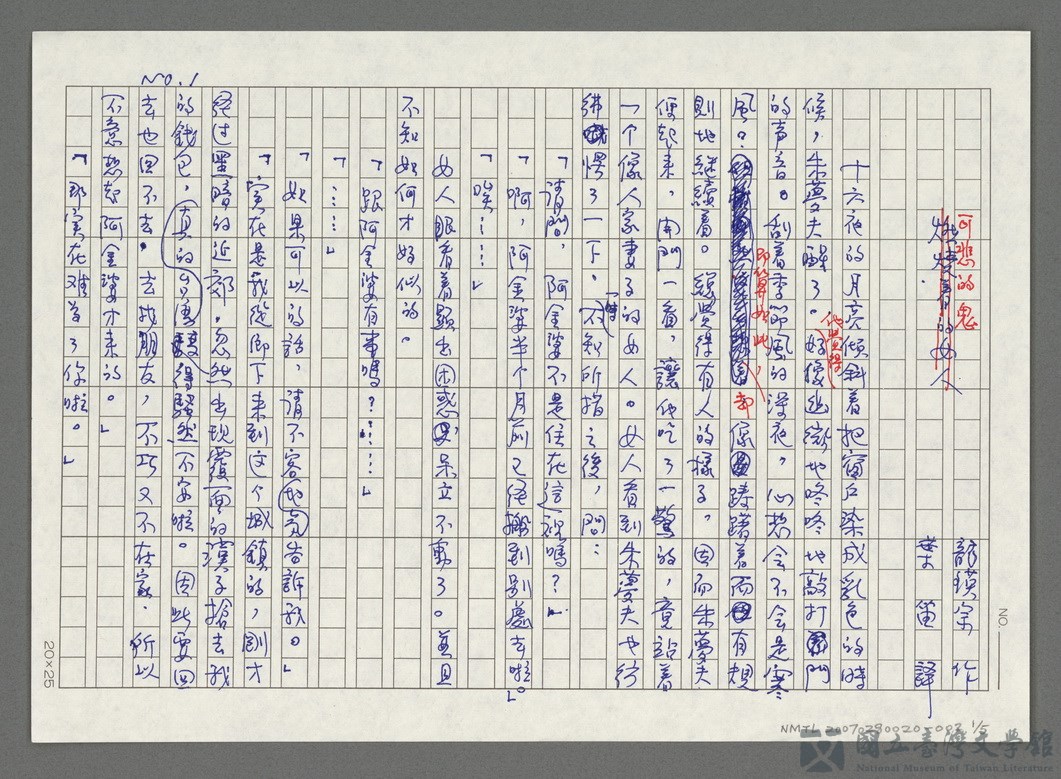 可悲的鬼
龍瑛宗 作
葉笛 譯
十六夜的月亮傾斜着把窗戶染成乳色的時
候,朱夢夫醒了。他覺得好像幽微地咚咚地敲打門
的声音。刮着季節風的深夜,心想会不会是寒
風?即算如此,却像踌躇着而有規
則地継續着。總覺得有人的樣子,因而朱夢夫
便起來,開門一看,讓他吃了一驚的,竟站着
一个像人家妻子的女人。女人看到朱夢夫也彷
彿愣了一下,不知所指之後,問:
「请問,阿金婆不是住在這裡嗎?」
「啊,阿金婆半个月前已経搬到別處去啦。」
「唉……」
女人眼看着顯出困惑,呆立不動了。並且
不知如何才好似的。
「跟阿金婆有事嗎?……」
「……」
「如果可以的話,请不客氣告訴我。」
「实在是我從鄉下来到这个城鎮的,剛才
経过黑暗的近郊,忽然出現覆面的漢子搶去我
的錢包,真的
得驟然不安啦。因此要回
去也回不去。去找朋友,不巧又不在家,所以
不意想起阿金婆才來的。」
「那实在难為了你啦。」
No. 1
NO.
20×25
NMTL 20070290020-003 1/5
國立臺灣文學館
National Museum of Taiwan Literature